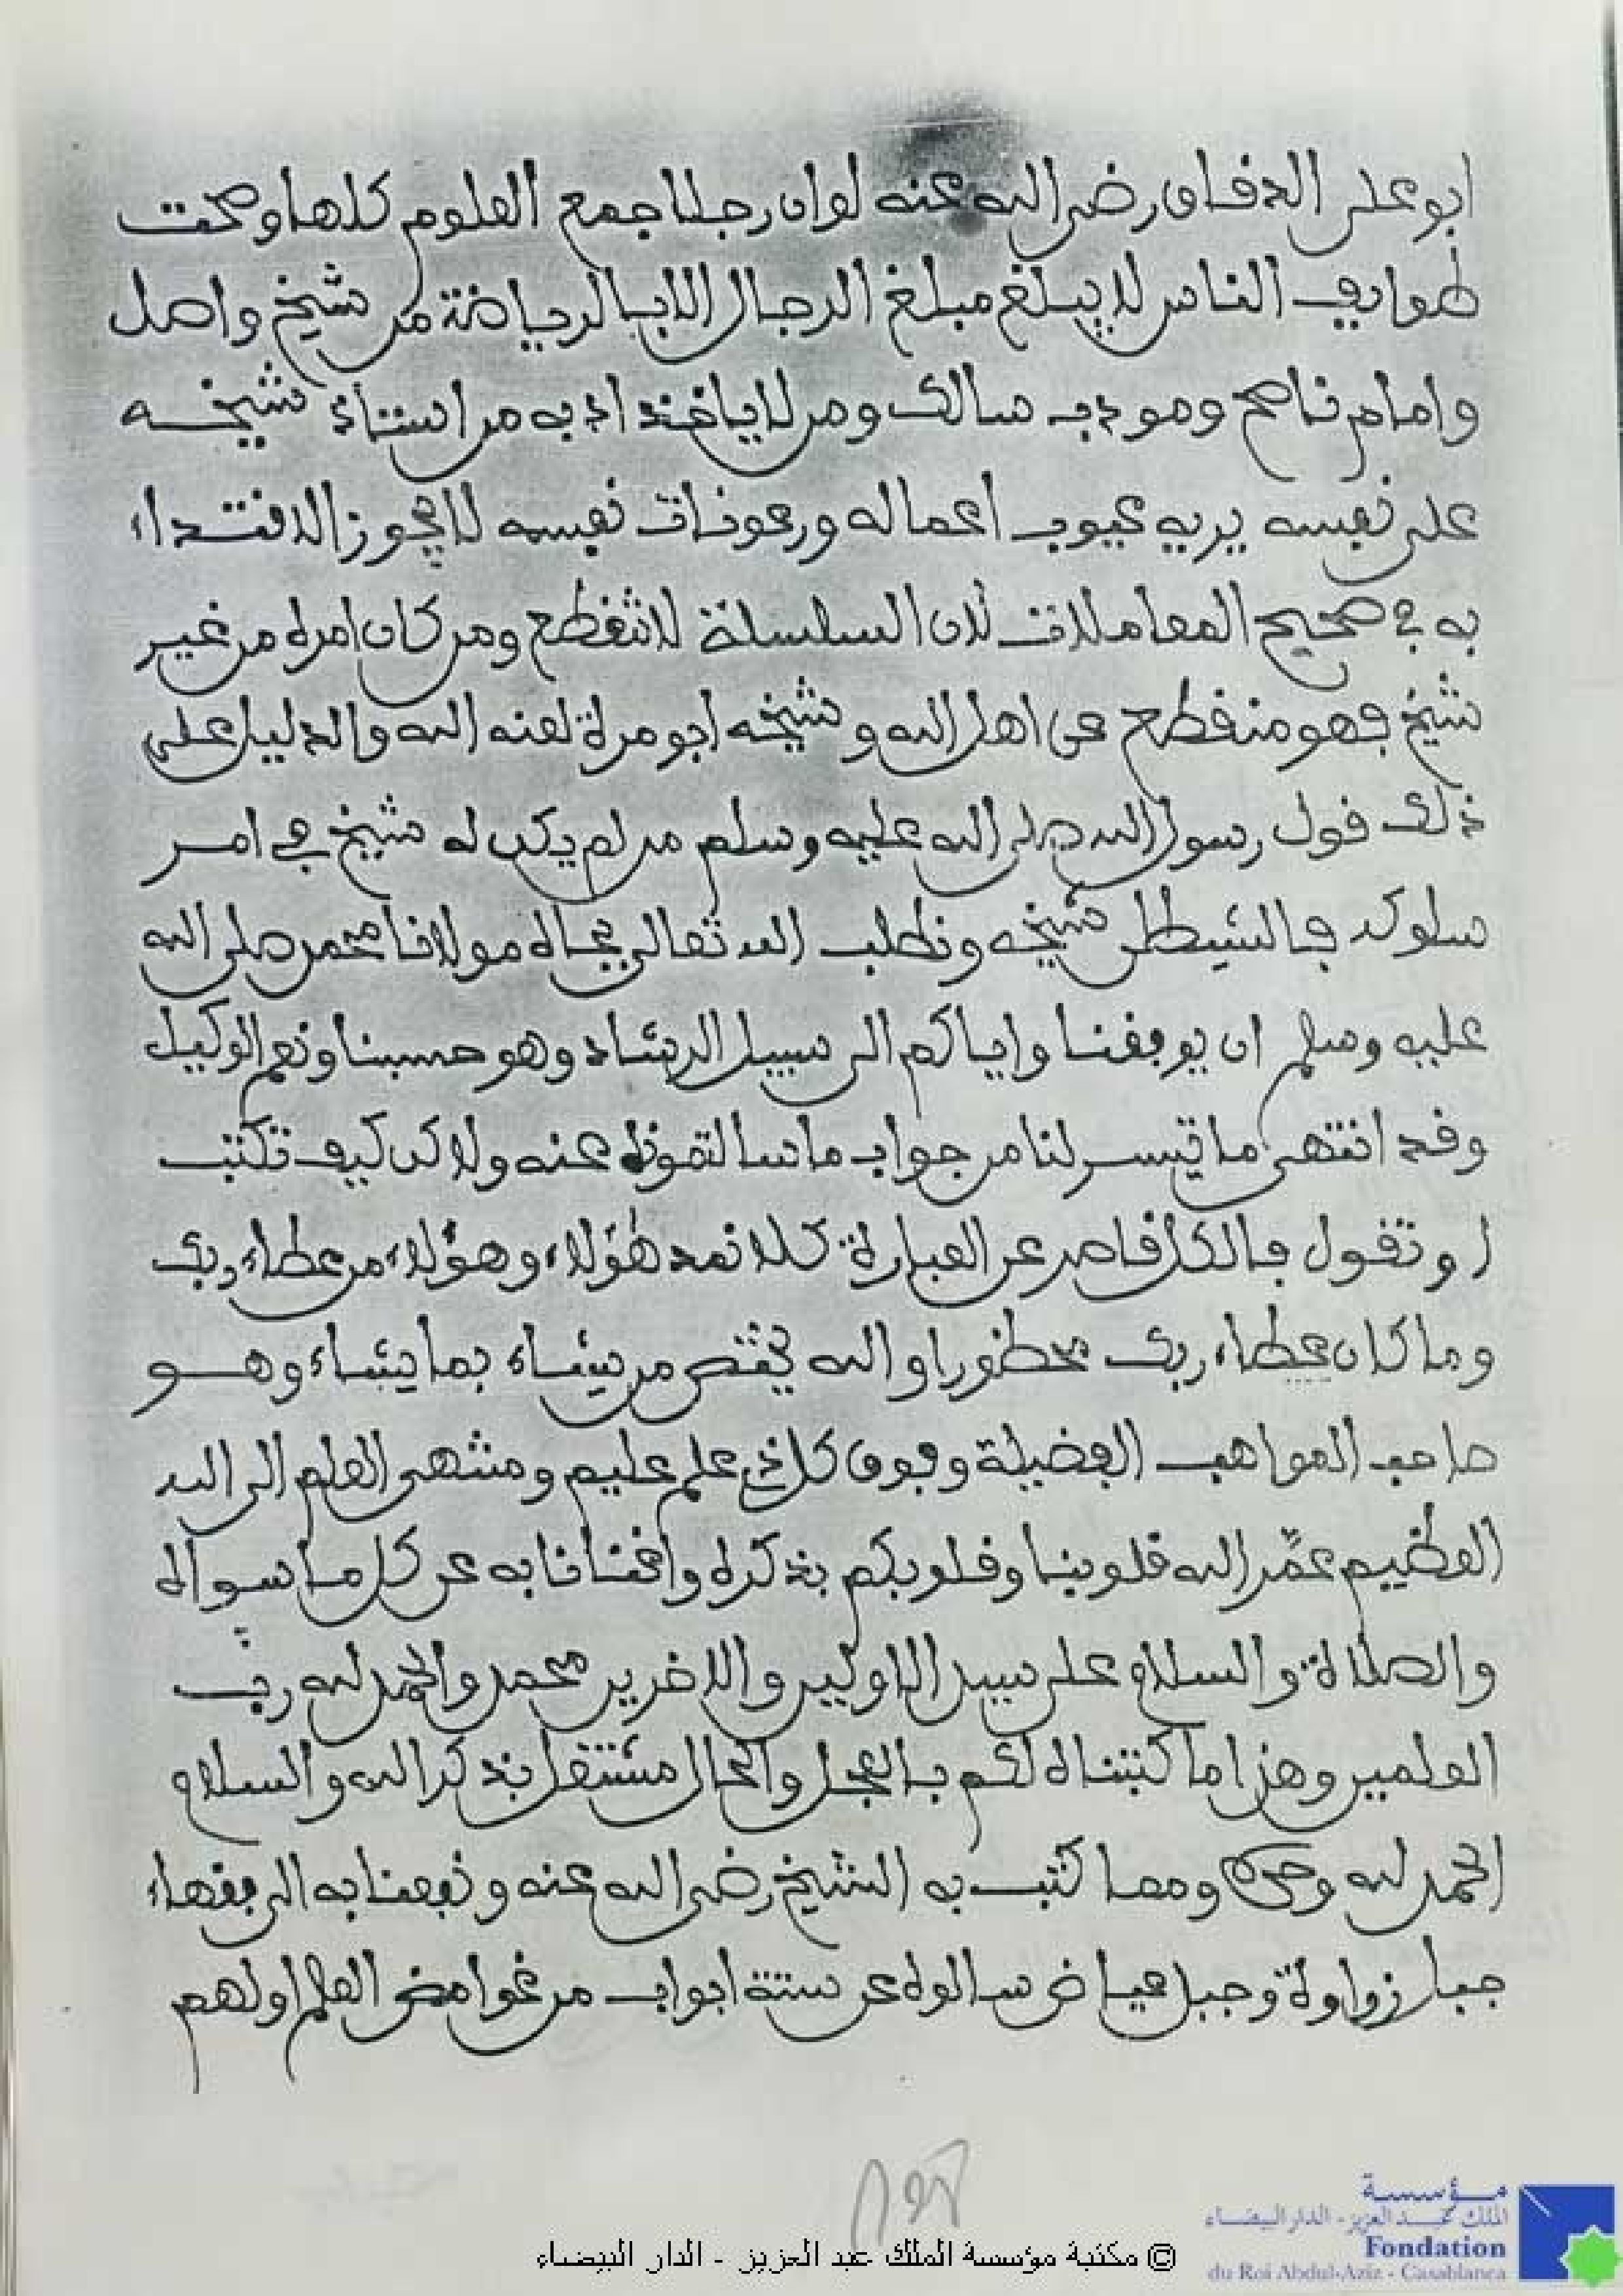 ابو على الدقاق رضى الله عنه لو ان رجلا جمع العلوم كلها وصحت
طوايف الناس لا يبلغ مبلغ الرجال الا بالرياضة من شيخ واصل
وامام ناصح ومودب سالك ومن لا ياخذ ادبه من استاذ شيخه
على نفسه يريه عيوب اعماله ورعونات نفسه لا يجوز الاقتداء
به في صحيح المعاملات لان السلسلة لا تنقطع ومن كان امره من غير
شيخ فهو منقطع عن اهل الله وشيخه ابو مرة لعنه الله والدليل على
ذلك قول رسول الله صلى الله عليه وسلم من لم يكن له شيخ في امر
سلوكه فالشيطن شيخه ونطلب الله تعالى بجاه مولانا محمد صلى الله
عليه وسلم ان يوفقنا واياكم الى سبيل الرشاد وهو حسبنا ونعم الوكيل
وقد انتهى ما تيسر لنا من جواب ما سالتمونا عنه ولاكن كيف تكتب
او تقول فالكل قاصر عن العبارة كلا نمد هؤلاء وهؤلاء من عطاء ربك
وما كان عطاء ربك محظورا والله يختص من يشاء بما يشاء وهو
صاحب المواهب الفضيلة وفوق كل ذي علم عليم ومنتهى العلم الى الله
العظيم عمّر الله قلوبنا وقلوبكم بذكره واغنانا به عن كل ما سواه
والصلاة والسلام على سيد الاولين والاخرين محمد والحمد لله رب
العلمين وهذا ما كتبناه لكم بالعجل والحال مشتغل بذكر الله والسلام
الحمد لله وحده ومما كتب به الشيخ رضى الله عنه ونفعنا به الى فقهاء
جبل زواوة وجبل عياض سالوه عن ستة ابواب من غوامض العلم اولهم
© مكتبة مؤسسة الملك عبد العزيز - الدار البيضاء
مؤسسة
الملك عبد العزيز - الدار البيضاء
Fondation
du Roi Abdul-Aziz - Casablanca